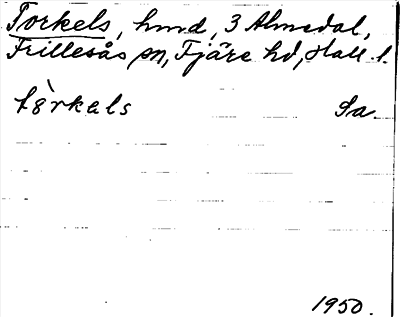 Torkels, hmd, 3 Almedal,
Frillesås sn, Fjäre hd, Hall. l.
tòrkals Sa.
1950.